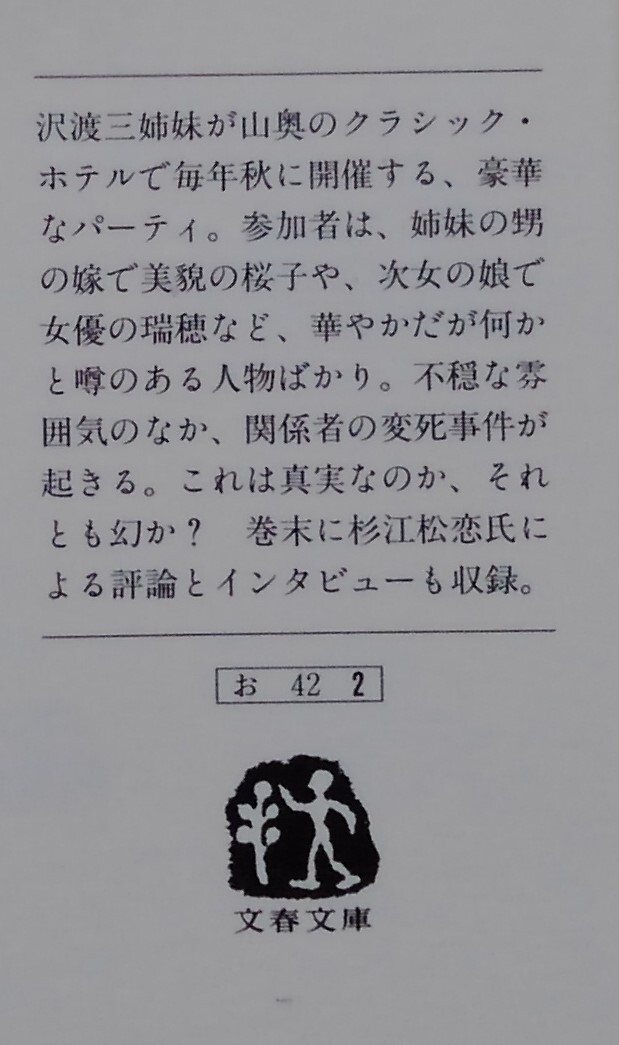 沢渡三姉妹が山奥のクラシック・
ホテルで毎年秋に開催する、豪華
なパーティ。参加者は、姉妹の甥
の嫁で美貌の桜子や、次女の娘で
女優の瑞穂など、華やかだが何か
と噂のある人物ばかり。不穏な雰
囲気のなか、関係者の変死事件が
起きる。これは真実なのか、それ
とも幻か？　巻末に杉江松恋氏に
よる評論とインタビューも収録。
お 42 2
文春文庫